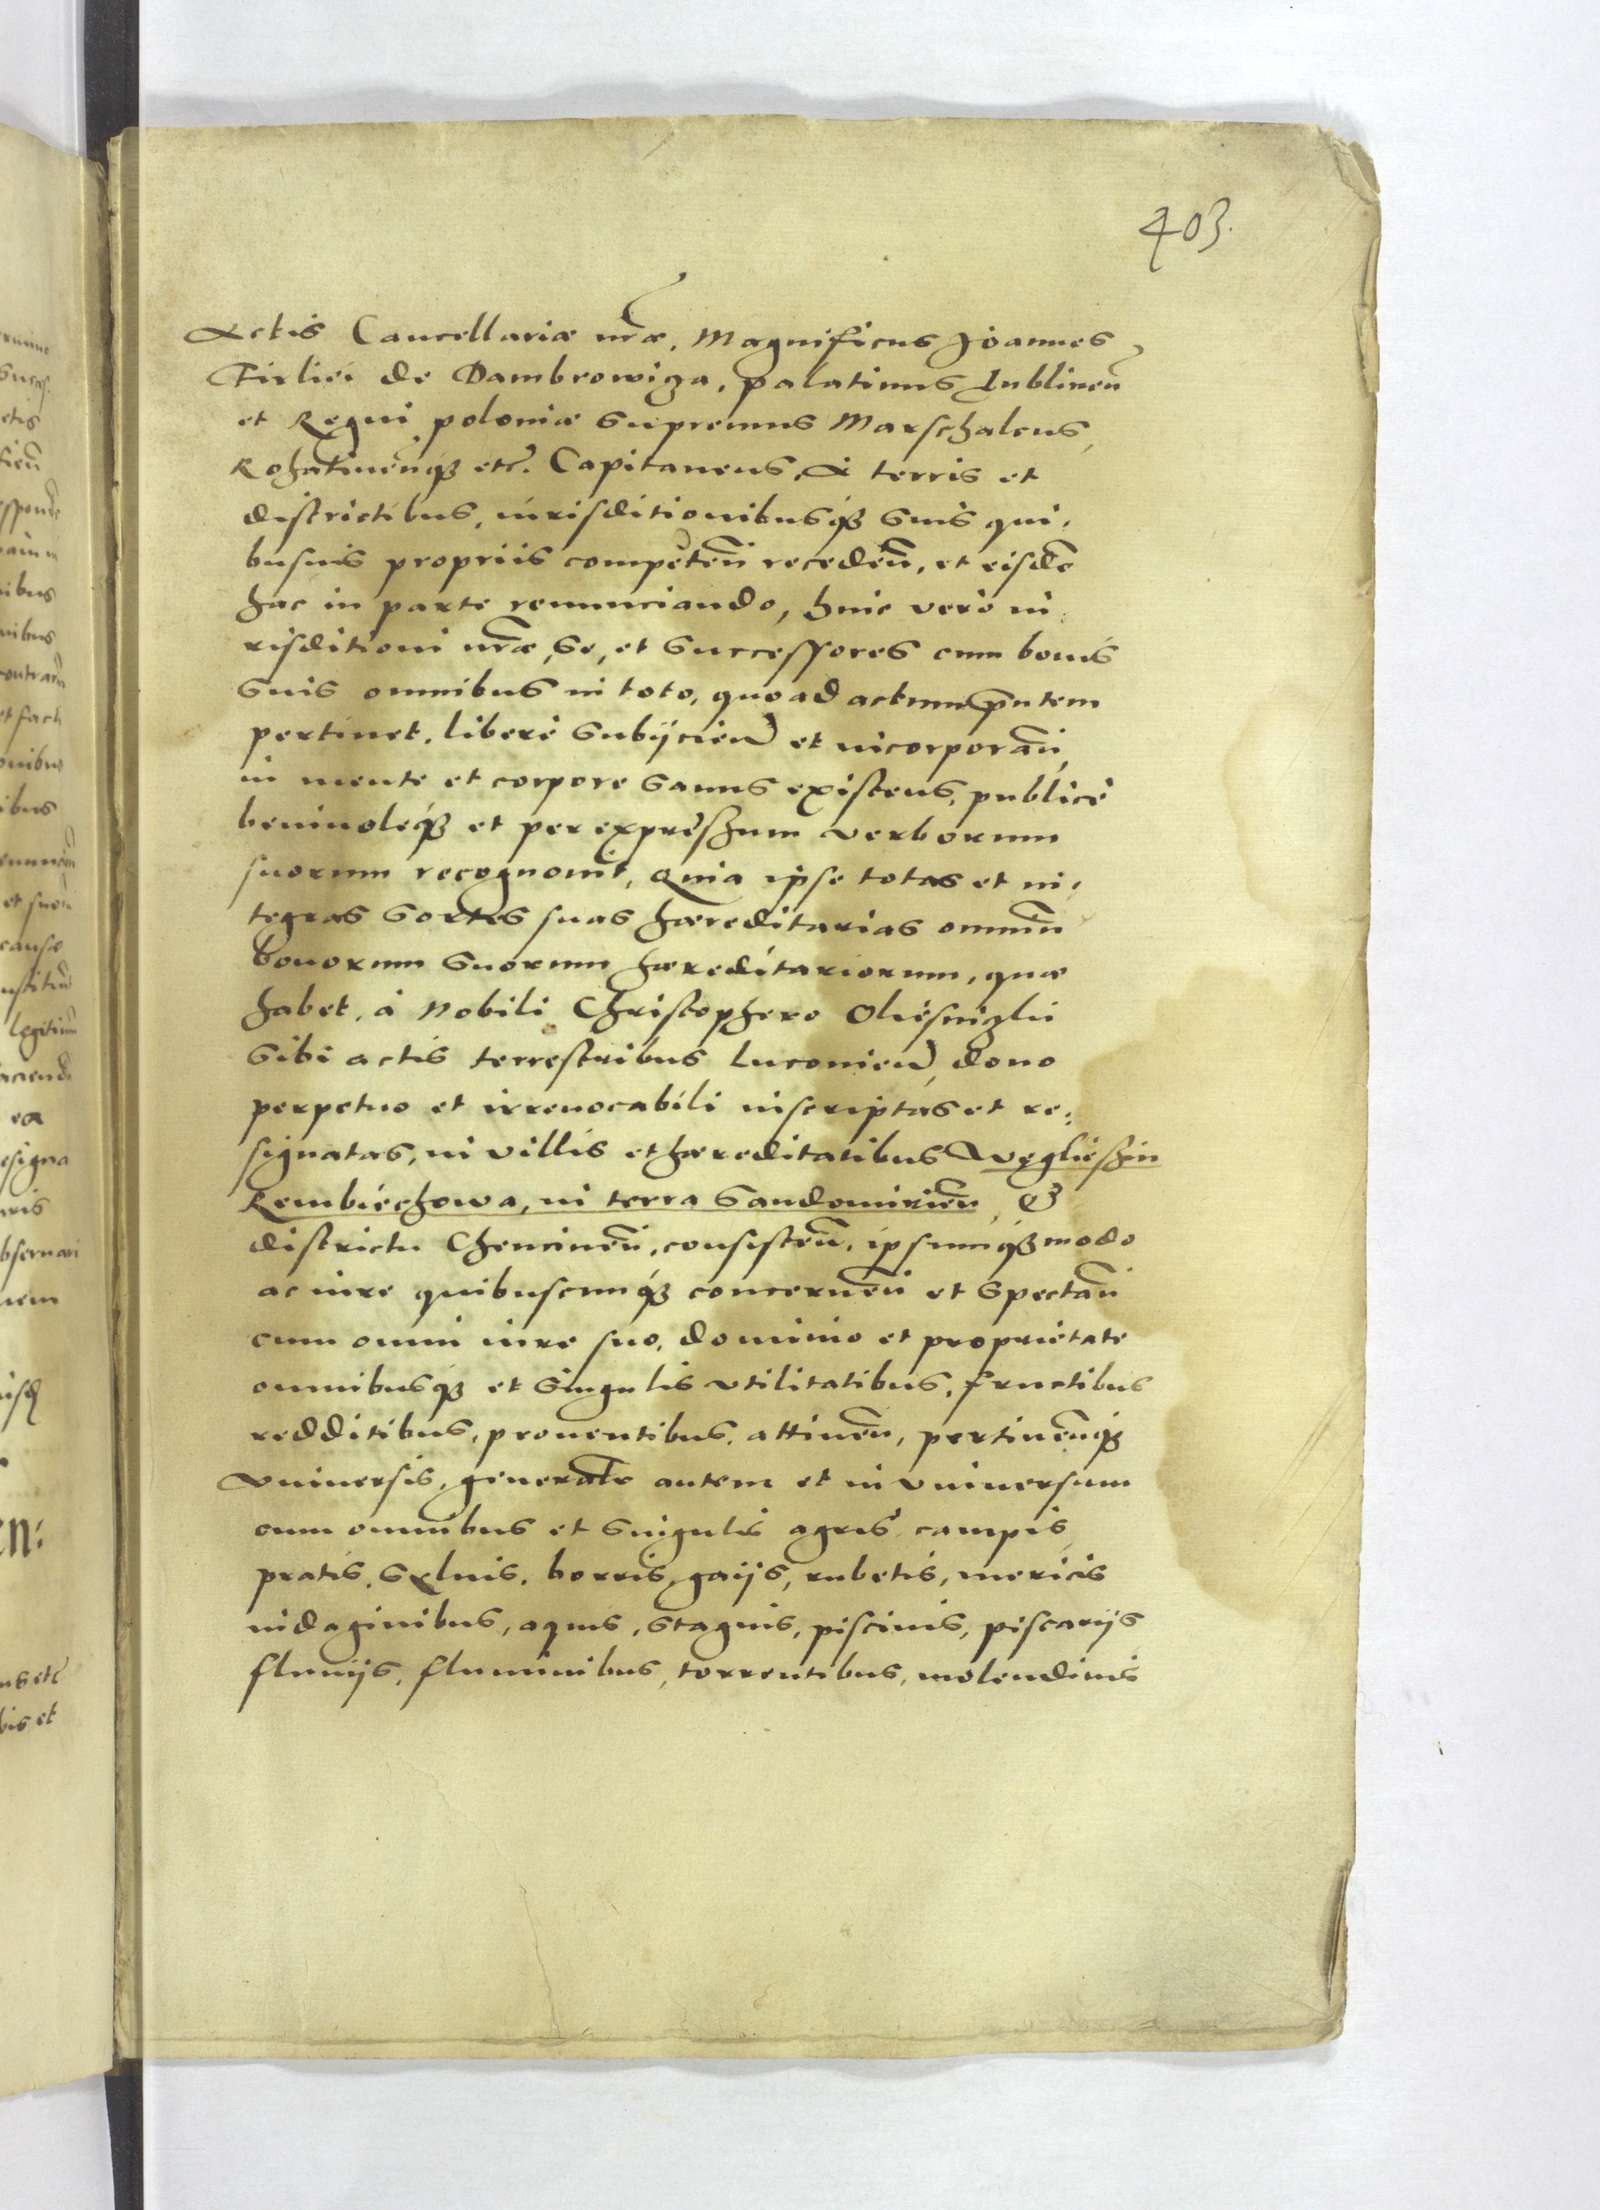 403.
Actis Cancellariæ nr̃æ, Magnificus Joannes
Firliei de Dambrowiza, palatinus Lublineñ
et Regni poloniæ Supremus Marschalcus,
Rohatineñqȝ etc̃. Capitaneus, A terris et
districtibus, iurisditionibusqȝ Suis qui,
busuis propriis competeñ recedeñ, et eisdẽ
hac in parte renunciando, huic verò iu,
risditioni nr̃æ, Se, et Successores cum bonis
Suis omnibus in toto, quo ad actum p̃ntem
pertinet, liberè Subijcieñ et incorporañ,
in mente et corpore Sanus existens, publicè
beniuolèqȝ et per expreszum verborum
suorum recognouit, Quia ipse totas et in,
tegras Sortes suas hæreditarias omniũ
bonorum Suorum hæreditariorum, quæ
habet, à Nobili Christophero Oliésniczkii
Sibi actis terrestribus Luconieñ, dono
perpetuo et irreuocabili inscriptas et re,
signatas, in villis et hæreditatibus Węglieszin
Rembiechowa, in terra Sandomirieñ, &
districtu Chencineñ, consisteñ, ipsumqȝ modo
ac iure quibuscunqȝ concerneñ et Spectañ
cum omni iure suo, dominio et proprietate
omnibusqȝ et Singulis vtilitatibus, fructibus
redditibus, prouentibus, attineñ, pertineñqȝ
Vniuersis, generale autem et in vniuersum
cum omnibus et Singulis agris, campis,
pratis, Syluis, borris, gaijs, rubetis, mericis
indaginibus, aquis, Stagnis, piscinis, piscarijs
fluuijs, fluminibus, torrentibus, molendinis